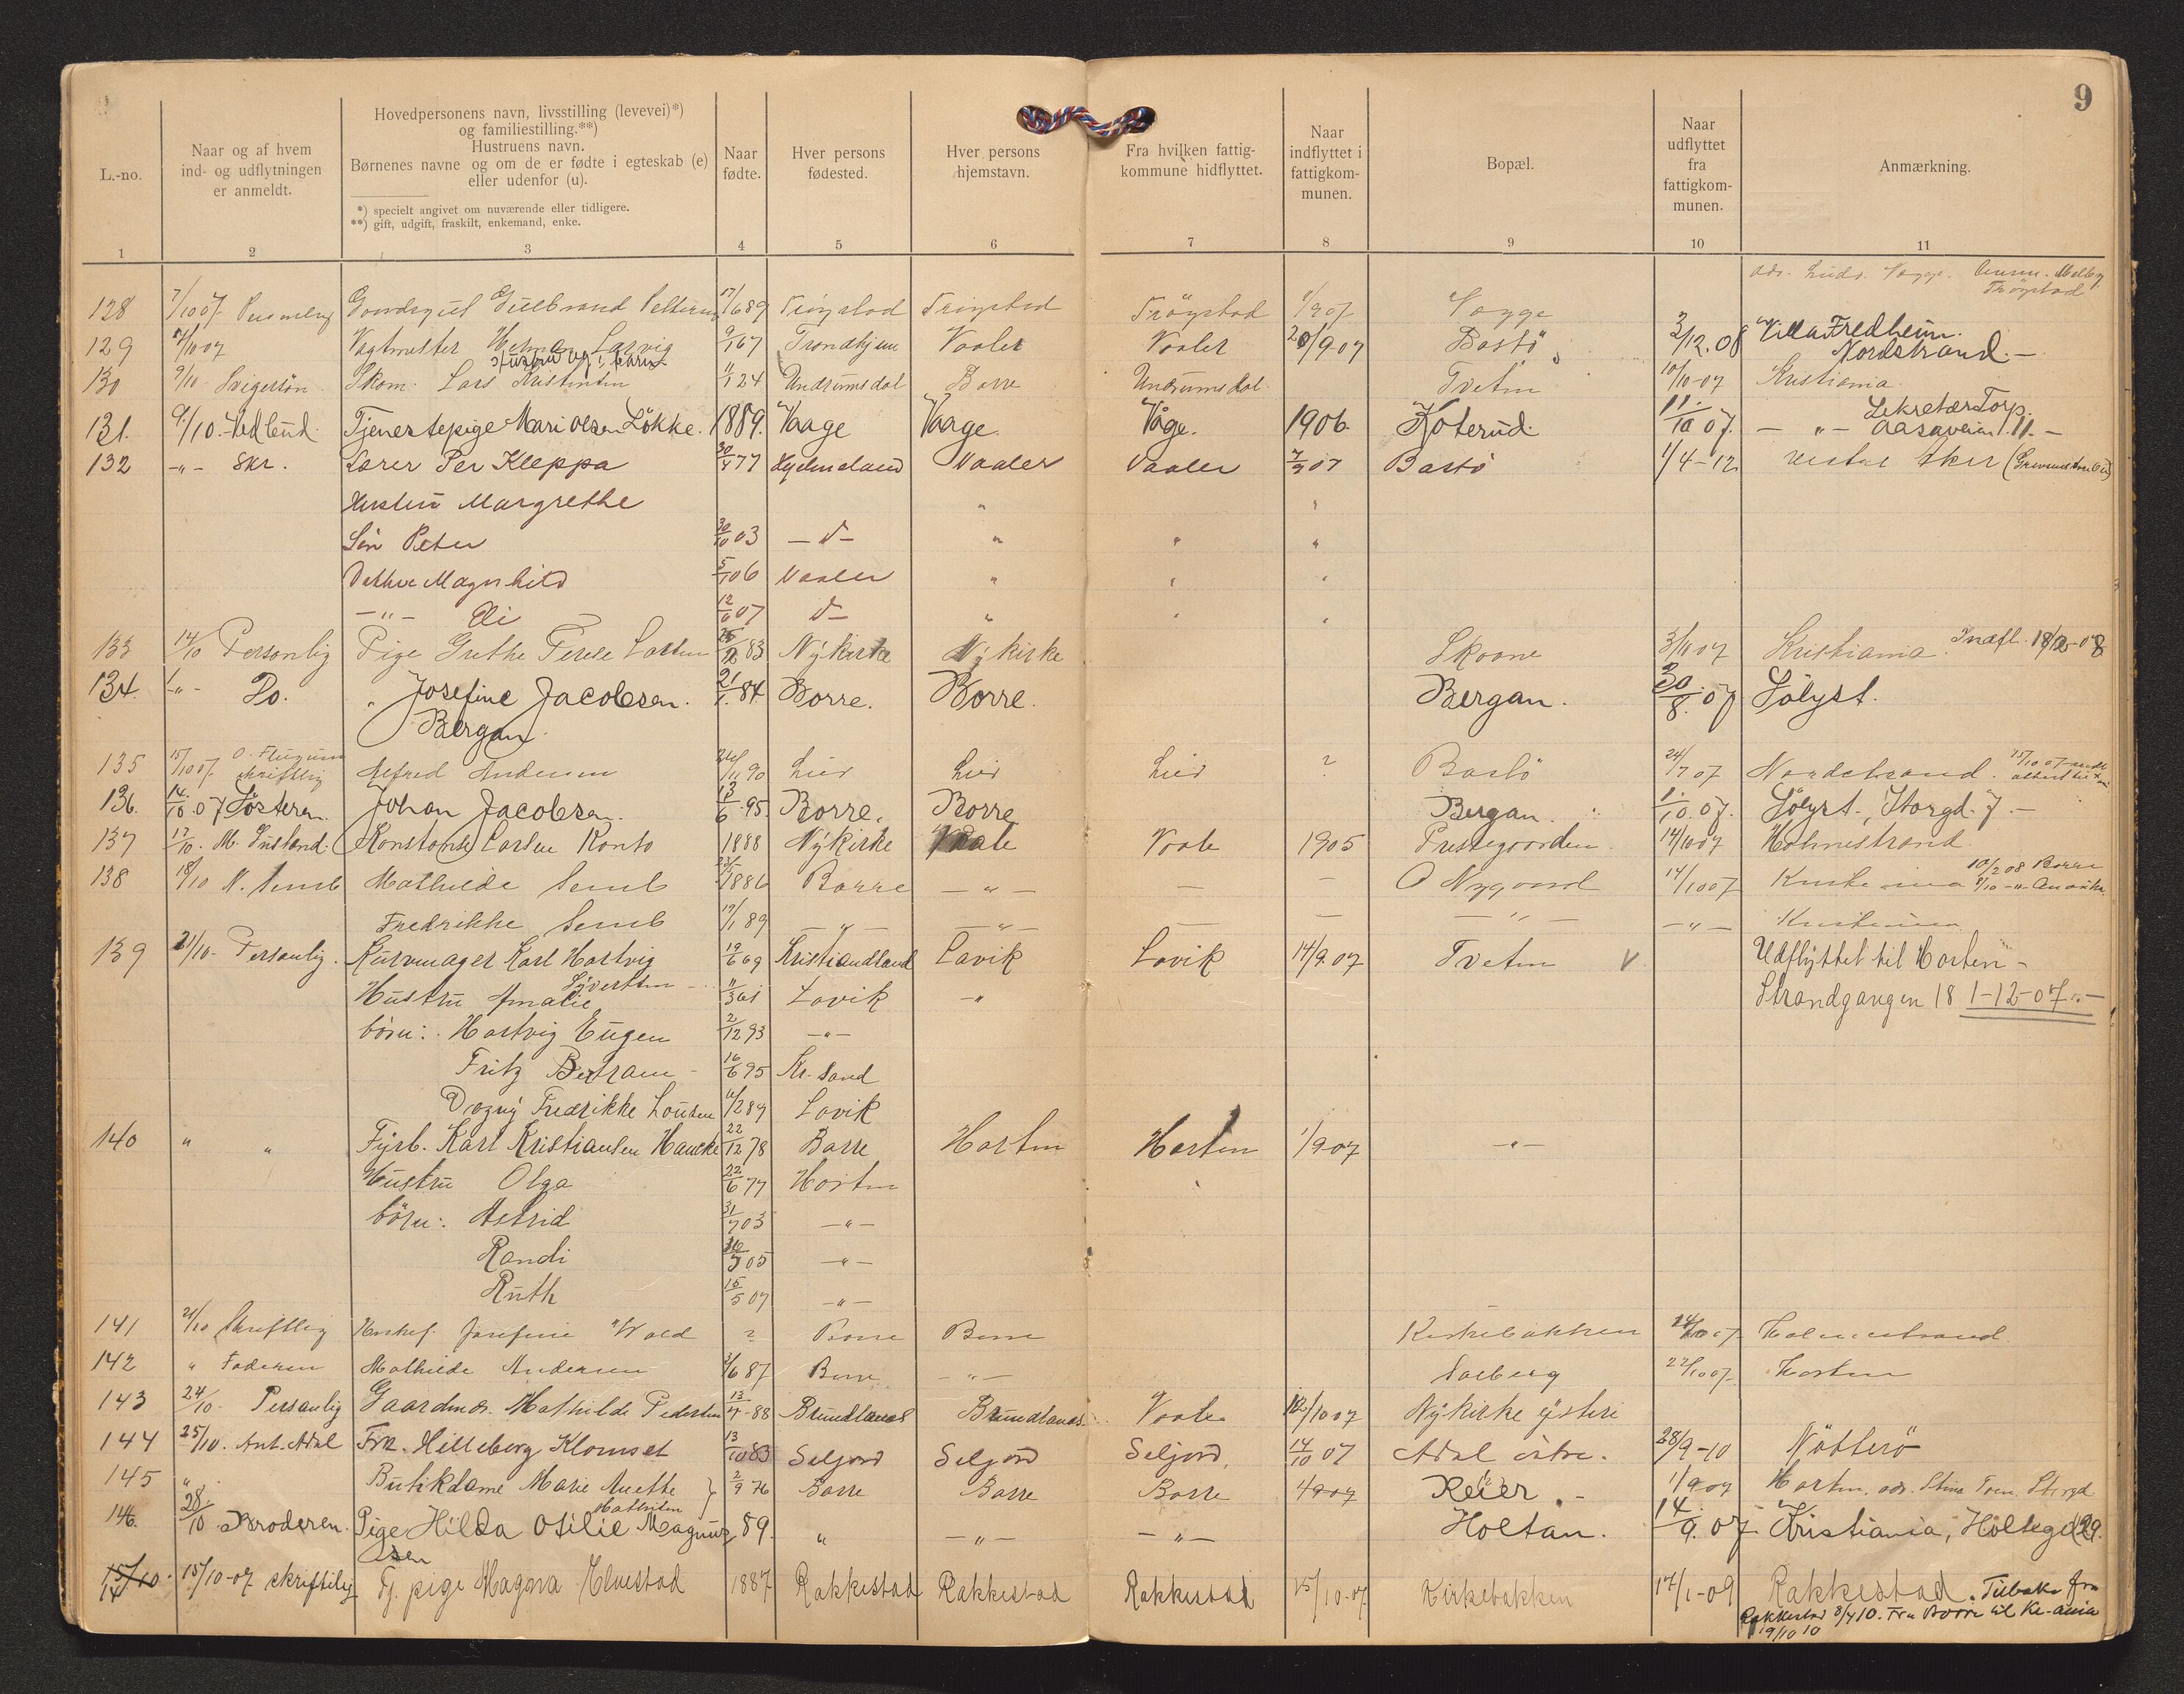 9
L.-no.
Naar og af hvem
ind- og udflytningen
er anmeldt.
Hovedpersonens navn, livsstilling (levevei)*)
og familiestilling.**)
Hustruens navn.
Børnenes navne og om de er fødte i egteskab (e)
eller udenfor (u).
*) specielt angivet om nuværende eller tidligere.
**) gift, udgift, fraskilt, enkemand, enke.
Naar
fødte.
Hver persons
fødested.
Hver persons
hjemstavn.
Fra hvilken fattig-
kommune hidflyttet.
Naar
indflyttet i
fattigkom-
munen.
Bopæl.
Naar
udflyttet
fra
fattigkom-
munen.
Anmærkning.
1 2 3 4 5 6 7 8 9 10 11
Trøgstad
128 7/10 07 Gaardsgut Gulbrand 17/6 89 Trögstad Trögstad Trögstad 1/9 07
129 9/10 07 Vagtmester Larvig 9/1 67 Trondhjem Vaaler Vaaler 20/9-07 Bastö 3/12.08 Villa Fredheim.
Nordstrand.-
130 9/10 Svigersön Skom. Lars Kristensen 11/1 24 Undrumsdal Borre Undrumsdal Tveten 10/10-07 Kristiania
131. 9/10.- Tjenestepige Mari Olsen Lökke. 1889. Vaage Vaage. Våge. 1906. Koterud. 11./10 07. - " - Sekretær Torp.
Aasaveien 11.-
132 -"- Skr. Lærer Per Kleppa 30/4 77 Hjelmeland Vaaler Vaaler 7/9 07 Bastö 1/4-12 Vestre Aker
Hustru Margrethe "
Sön Peter 30/10 03 - d - " " "
Datter Magnhild 5/1 06 Vaaler " " "
-"- Eli 12/6 07 d- " " "
133 14/10 Personlig Pige Grethe Terese Larsen 25/12 83 Nykirke Nykirke Skaane 3/11 07 Kristiania. Indfl. 18/12-08
134. -"- Do. " Josefine Jacobsen. 21/1. 84. Borre. Borre. Bergan. 30/8. 07 Sölyst.
Bergan.
135 15/10 07. skriftlig Alfred Andersen 24/11 90 Lier Lier Lier ? Bastö 24/7 07 Nordstrand.
136. 14./10.07 Søsteren. Johan Jacobsen. 13/6.95. Borre. Borre Bergan. 1./10.07. Sölyst., Storgd. 7.-
137 17/10. Konstanse Larsen Ronto 1888 Nykirke Vaale Vaale 1905 Prestegaarden 14/10 07 Holmestrand
138 18/10 N. Semb Mathilde Semb 1886 Borre - " - - - Nygaard 14/10 07 10/2 08 Borre
Fredrikke Semb 19/1 89 - " - - " - - - - " - - " - Kristiania
139 21/10- Personlig. Kurvmager Karl Hartvig 19/6 69 Kristiansand Lavik Lavik 14/9.07 Tveten v Udflyttet til Horten -
Syvertsen -
Hustru Amalie 11/3 61 Lavik -" Strandgangen 18 1-12-07.-
børn: Hartvig Eugen 2/12 93 -"-
Fritz Bertram - 16/6 95 Kr. sand
Dagny Fredrikke Louise Lavik
140 " " Fyrb. Karl Kristiansen Hancke 22/12 78 Borre Horten Horten 1/9 07 -"-
Hustru Olga 22/6 77 Horten
börn: Astrid 31/7 03 -"-
Randi 05 -"-
Ruth 15/5 07 -"-
141 21/10 Skriftlig Josefine Wold ? Borre Borre Kirkebakken 07 Holmestrand.
142 " Faderen Mathilde Andersen 87 Borre - " - Solberg 22/10 07. Horten
143 24/10. Personlig Gaardmds. Mathilde Pedersen 13/4-88 Brundlanes Brundlanes Vaale 12/10 07 Nykirke ysteri
144 25/10. Ant. Adal Frk. Hilleborg Klomset 13/10 83 Seljord Seljord Seljord. 14/10 07 Adal östre. 28/9-10 Nötterö
145 " Butikdame Marie Anette 2/9 76 Borre Borre Borre 4/9 07 Reier. - 1/9 07 Horten,
Mathisen
146. 28/10 Broderen. Pige Hilda Otilie Magnus 89. " - " - - " - Holtan. 14./9. 07 Kristiania, Holtegd. 29.
sen
15/10. 15/10-07 skriftlig Tj. pige Magna Elvestad 1887 Rakkestad Rakkestad Rakkestad 15/10-07 Kirkebakken 17/1-09 Rakkestad. Tilbake fra
Rakkestad 8/4 10. Fra Borre til Kr-ania
19/10 10